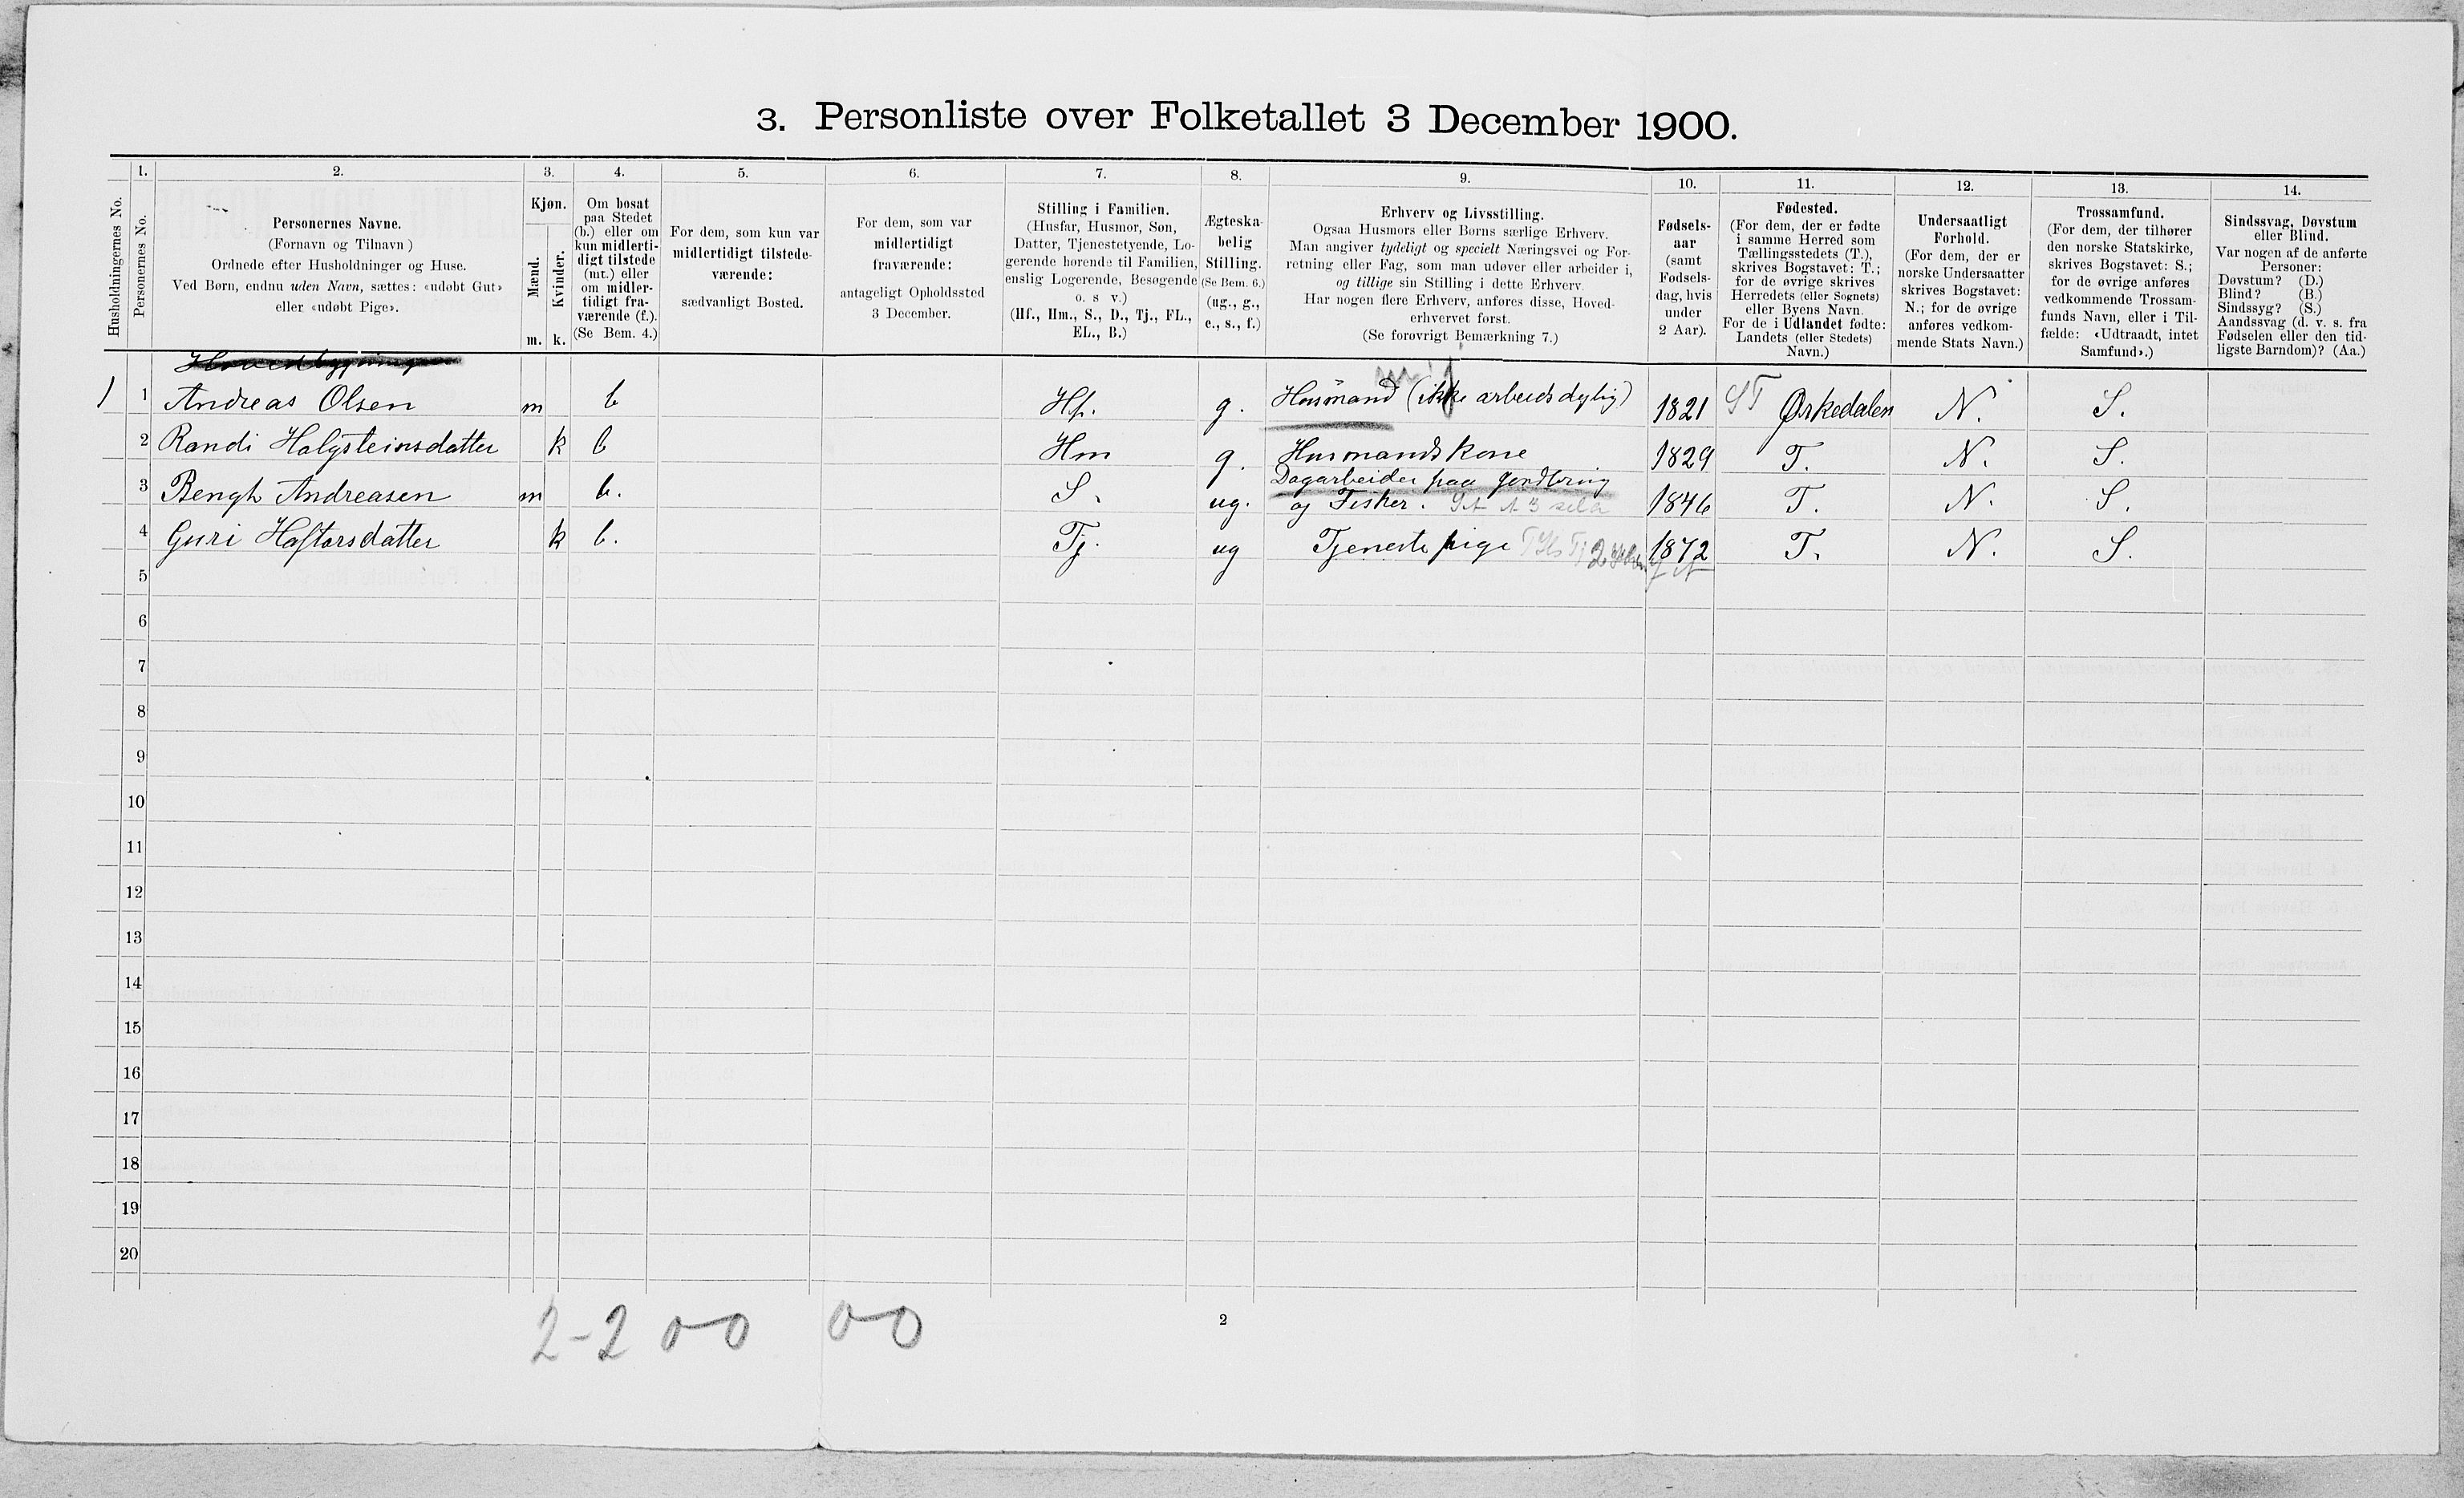 3. Personliste over Folketallet 3 December 1900.
Husholdningernes No.
1.
Personernes No.
2.
Personernes Navne.
(Fornavn og Tilnavn)
Ordnede efter Husholdninger og Huse.
Ved Børn, endnu uden Navn, sættes: «udøbt Gut»
eller «udøbt Pige».
3.
Kjøn.
Mænd.
Kvinder.
m. k.
4.
Om bosat
paa Stedet
(b.) eller om
kun midlerti-
digt tilstede
(mt.) eller
om midler-
tidigt fra-
værende (f.).
(Se Bem. 4.)
5.
For dem, som kun var
midlertidigt tilstede-
værende:
sædvanligt Bosted.
6.
For dem, som var
midlertidigt
fraværende:
antageligt Opholdssted
3 December.
7.
Stilling i Familien.
(Husfar, Husmor, Søn,
Datter, Tjenestetyende, Lo-
gerende hørende til Familien,
enslig Logerende, Besøgende
o. s v.)
(Hf., Hm., S., D., Tj., FL.,
EL., B.)
8.
Ægteska-
belig
Stilling.
(Se Bem. 6.)
(ug., g.,
e., s., f.)
9.
Erhverv og Livsstilling.
Ogsaa Husmors eller Børns særlige Erhverv.
Man angiver tydeligt og specielt Næringsvei og For-
retning eller Fag, som man udøver eller arbeider i,
og tillige sin Stilling i dette Erhverv.
Har nogen flere Erhverv, anføres disse, Hoved-
erhvervet først.
(Se forøvrigt Bemærkning 7.)
10.
Fødsels-
aar
(samt
Fødsels-
dag, hvis
under
2 Aar).
11.
Fødested.
(For dem, der er fødte
i samme Herred som
Tællingsstedets (T.),
skrives Bogstavet: T.;
for de øvrige skrives
Herredets (eller Sognets)
eller Byens Navn.
For de i Udlandet fødte:
Landets (eller Stedets)
Navn.)
12.
Undersaatligt
Forhold.
(For dem, der er
norske Undersaatter
skrives Bogstavet:
N.; for de øvrige
anføres vedkom-
mende Stats Navn.)
13.
Trossamfund.
(For dem, der tilhører
den norske Statskirke,
skrives Bogstavet: S.;
for de øvrige anføres
vedkommende Trossam-
funds Navn, eller i Til-
fælde: «Udtraadt, intet
Samfund».)
14.
Sindssvag, Døvstum
eller Blind.
Var nogen af de anførte
Personer:
Døvstum? (D.)
Blind? (B.)
Sindssyg? (S.)
Aandssvag (d. v. s. fra
Fødselen eller den tid-
ligste Barndom)? (Aa.)
Hovedbygningen
1 1 Andreas Olsen m b Hf. g. Husmand (ikke arbeidsdygtig) 1821 ST Ørkedalen N. S.
2 Randi Halgsteinsdatter k b Hm g. Husmandskone 1829 T. N. S.
3 Bengt Andreasen m b. S. ug. Dagarbeider paa Jordbrug
og Fisker. 1846 T. N. S.
4 Guri Haftorsdatter k b. Tj. ug Tjenestepige 1872 T. N. S.
5
6
7
8
9
10
11
12
13
14
15
16
17
18
19
20
2-2 0-0 0-0
2